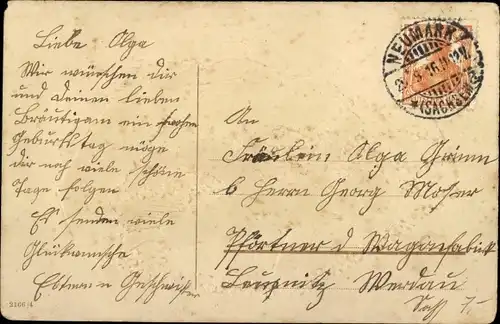 Liebe Olga
Wir wünschen dir
und deinen lieben
Bräutigam ein frohen
Geburtstag möge
dir noch viele schöne
Tage folgen
Es senden viele
Glükwünsche
Eltern u Geschwister
2106/4
NEUMARK
(SACHSEN)
An
Fräulein Olga Grimm
b Herrn Georg Moser
Pförtner d Wagenfabrik
Leupnitz Werdau
Sachs 7.-